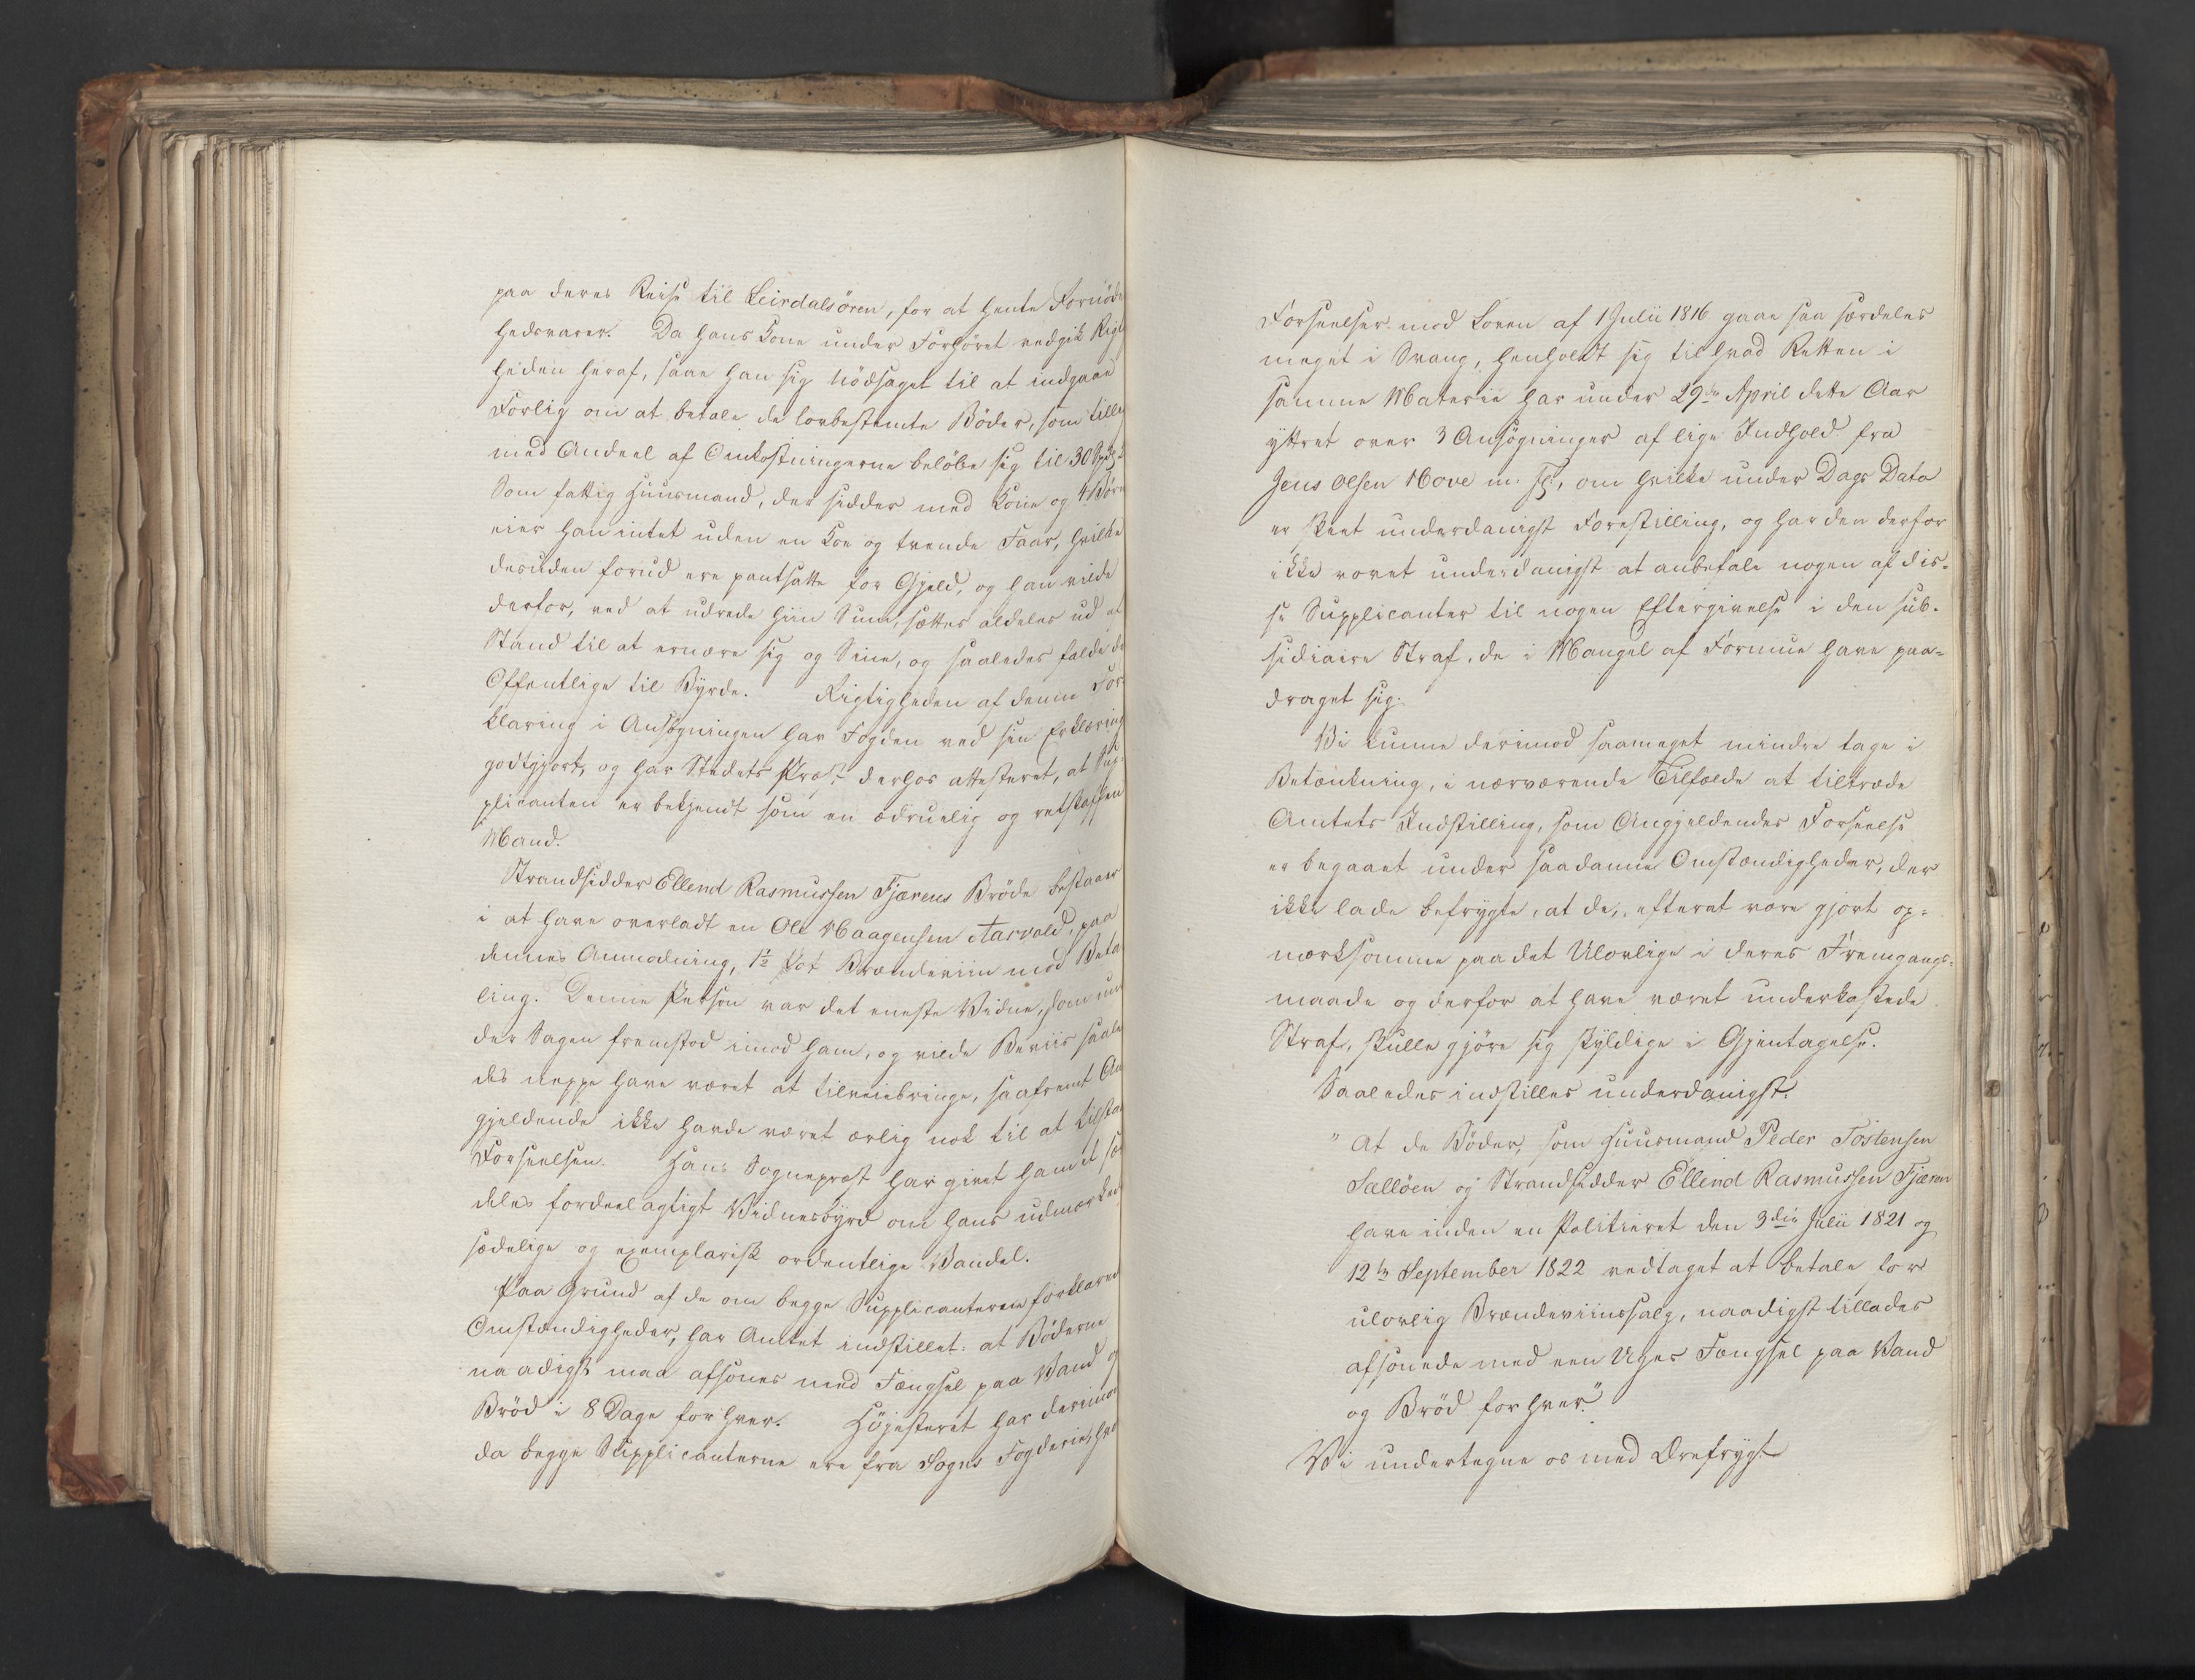 paa deres Reise til Leirdalsören, for at hente Fornöden
hedsvarer. Da hans Kone under Forhöret vedgik Rigtig
heden heraf, saae han sig nödsaget til at indgaae
Forlig om at betale de lovbestemte Böder, som tillige
med Andeel af Omkostningerne belöbe sig til 30 Spd.
Som fattig Huusmand, der sidder med Kone og 4 Börn
eier han intet uden en Koe og trende Faar, hvilke
desuden forud ere pantsatte for Gjeld, og han vilde
derfor, ved at udrede hiin Sum, sættes aldeles ud af
Stand til at ernære sig og Sine, og saaledes falde de
Offentlige til Byrde. Rigtigheden af denne For
klaring i Ansögningen har Fogden ved sin Erklæring
godtgjort, og har Stedets Præst derhos attesteret, at Sup-
plicanten er bekjendt som en ædruelig og retskaffen
Mand.
Strandsidder Ellend Rasmussen Fjærens Bröde bestaaer
i at have overladt en Ole Haagensen Aarvold, paa
dennes Anmodning, 1½ Pot Brændeviin mod Beta
ling. Denne Person var det eneste Vidne, som un
der Sagen fremstod imod ham, og vilde Beviis saale
des neppe have været at tilveiebringe, saafremt An
gjeldende ikke havde været ærlig nok til at tilstaae
Forseelsen. Hans Sognepræst har givet ham et sær
deles fordeelagtigt Vidnesbyrd om hans udmærkede
sædelige og exemplarisk ordentlige Vandel.
Paa Grund af de om begge Supplicanterne forklarede
Omstændigheder, har Amtet indstillet: at Böderne
naadigst maa afsones med Fængsel paa Vand og
Bröd i 8 Dage for hver. Höjesteret har derimod
da begge Supplicanterne ere fra Sogns Fogderie, hvor
Forseelser mod Loven af 1 Julii 1816 gaae saa særdeles
meget i Svang, henholdt sig til hvad Retten i
samme Materie har under 29de April dette Aar
yttret over 3 Ansögninger af lige Indhold fra
Jens Olsen Hove m. fl., om hvilke under Dags Dato
er skeet underdanigst Forestilling, og har den derfor
ikke vovet underdanigst at anbefale nogen af dis-
se Supplicanter til nogen Eftergivelse i den sub-
sidiaire Straf, de i Mangel af Formue have paa-
draget sig.
Vi kunne derimod saameget mindre tage i
Betænkning, i nærværende Tilfælde at tiltræde
Amtets Indstilling, som Angjeldendes Forseelse
er begaaet under saadanne Omstændigheder, der
ikke lade befrygte, at de, efterat være gjort op-
mærksomme paa det Ulovlige i deres Fremgangs-
maade og derfor at have været underkastede
Straf, skulle gjöre sig skyldige i Gjentagelse.
Saaledes indstilles underdanigst:
"At de Böder, som Huusmand Peder Tostensen
Sællöen og Strandsidder Ellend Rasmussen Fjæren
have inden en Politieret den 3die Julii 1821 og
12te September 1822 vedtaget at betale for
ulovlig Brændeviinssalg, naadigst tillades
afsonede med een Uges Fængsel paa Vand
og Bröd for hver."
Vi undertegne os med Ærefrygt